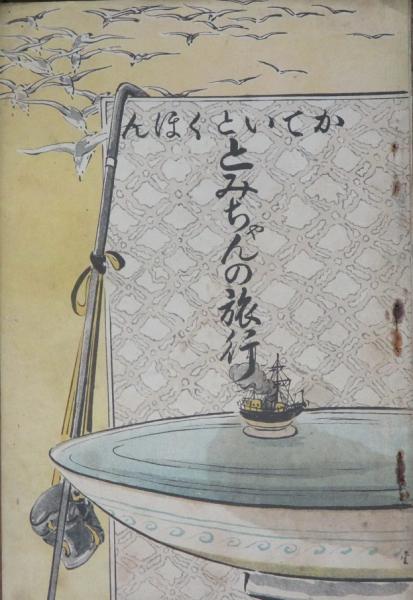 かていとくほん
とみちゃんの旅行